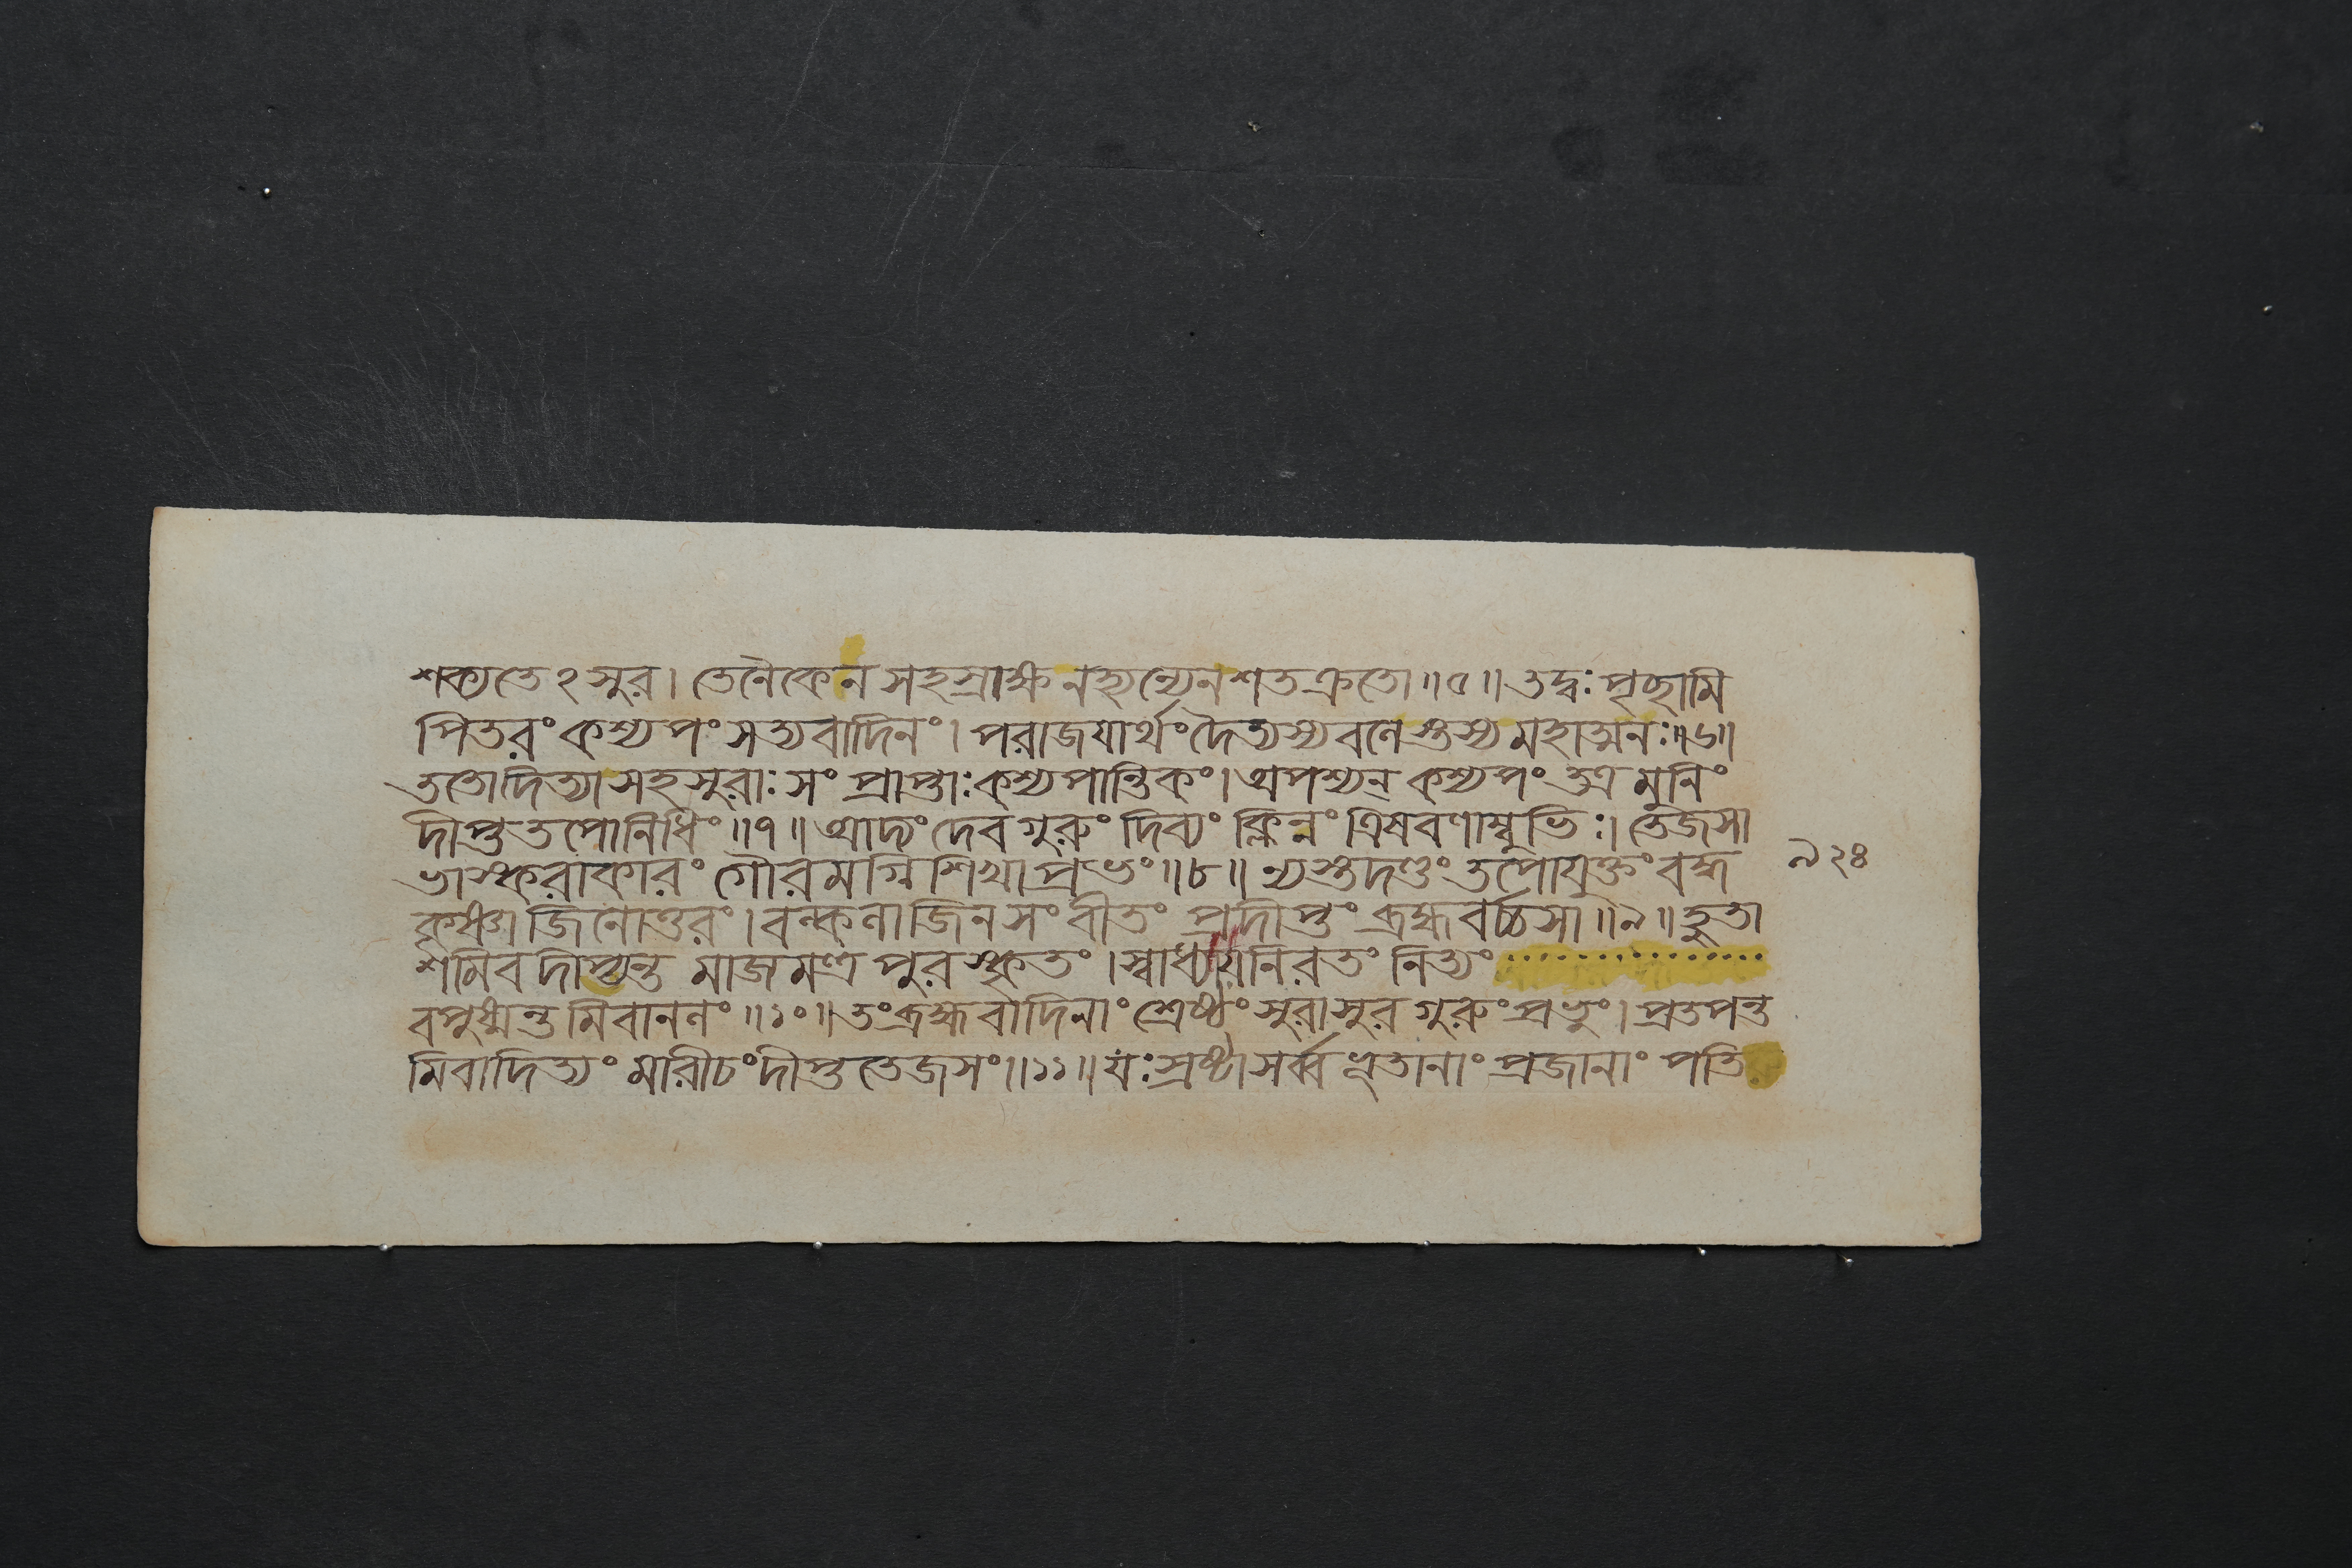 শক্যতেঽসুর। তেনৈকেন সহস্রাক্ষ নহ্যন্যেন শতক্রতো॥৫॥ তদ্বঃ পৃচ্ছামি
পিতরং কশ্যপং সত্যবাদিনং। পরাজযার্থং দৈত্যস্য বলেস্তস্য মহাত্মনঃ॥৬॥
ততোদিত্যা সহ সুরাঃ সংপ্রাপ্তাঃ কশ্যপান্তিকং। অপশ্যন্ কশ্যপং তত্র মুনিং
দীপ্ততপোনিধিং॥৭॥ আদ্যং দেবগুরুং দিব্যং ক্লিন্নং ত্রিষবণাম্বুভিঃ। তেজসা
ভাস্করাকারং গৌরমগ্নিশিখাপ্রভং॥৮॥ ন্যস্তদণ্ডং তপোযুক্তং বদ্ধ
৯২৪
কৃষ্ণাজিনোত্তরং। বল্কলাজিনসংবীতং প্রদীপ্তং ব্রহ্মবর্চ্চসা॥৯॥ হুতা
শমিব দীপ্যন্ত মাজমন্ত্র পুরস্কৃতং। স্বাধ্যায়নিরতং নিত্যং ................
বপুষ্মন্ত মিবাননং॥১০॥ তং ব্রহ্মবাদিনাং শ্রেষ্ঠং সুরাসুর গুরুং প্রভুং। প্রতপন্ত
মিবাদিত্যং মারীচং দীপ্ত তেজসং॥১১॥ যঃ স্রষ্টা সর্ব্বভূতানাং প্রজানাং পতি